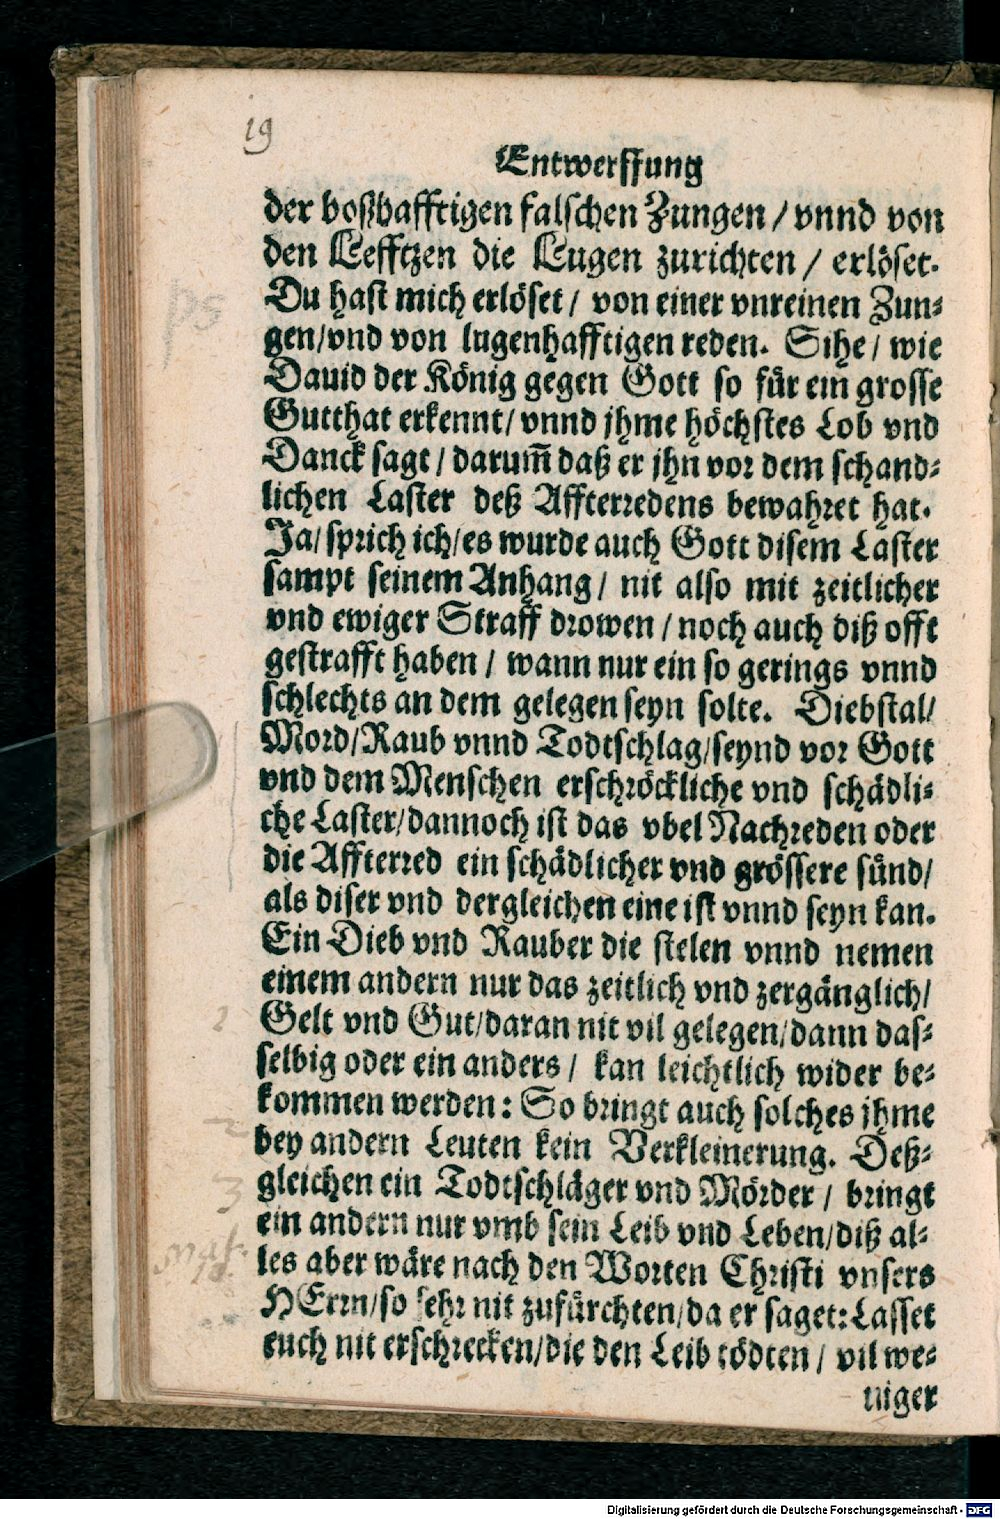 19
Entwerffung
der boßhafftigen falschen Zungen / vnnd von
den Lefftzen die Lugen zurichten / erlöset.
Du hast mich erlöset / von einer vnreinen Zun-
gen/vnd von lugenhafftigen reden. Sihe / wie
Dauid der König gegen Gott so für ein grosse
Gutthat erkennt/ vnnd jhme höchstes Lob vnd
Danck sagt / darum̃ daß er jhn vor dem schand-
lichen Laster deß Affterredens bewahret hat.
Ja/ sprich ich/es wurde auch Gott disem Laster
sampt seinem Anhang / nit also mit zeitlicher
vnd ewiger Straff drowen / noch auch diß offt
gestrafft haben / wann nur ein so gerings vnnd
schlechts an dem gelegen seyn solte. Diebstal/
Mord/Raub vnnd Todtschlag/seynd vor Gott
vnd dem Menschen erschröckliche vnd schädli-
che Laster/dannoch ist das vbel Nachreden oder
die Affterred ein schädlicher vnd grössere sünd/
als diser vnd dergleichen eine ist vnnd seyn kan.
Ein Dieb vnd Rauber die stelen vnnd nemen
einem andern nur das zeitlich vnd zergänglich/
Gelt vnd Gut/daran nit vil gelegen/dann das-
selbig oder ein anders / kan leichtlich wider be-
kommen werden: So bringt auch solches jhme
bey andern Leuten kein Verkleinerung. Deß-
gleichen ein Todtschläger vnd Mörder / bringt
ein andern nur vmb sein Leib vnd Leben/diß al-
les aber wäre nach den Worten Christi vnsers
HErrn/so sehr nit zufürchten/da er saget: Lasset
euch nit erschrecken/die den Leib tödten / vil we-
niger
ps
2
2
3
mat.
10.
Digitalisierung gefördert durch die Deutsche Forschungsgemeinschaft - DFG